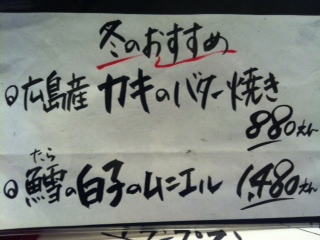 冬のおすすめ
◎広島産 カキのバター焼き
880えん
たら
◎鱈の白子のムニエル 1,480えん